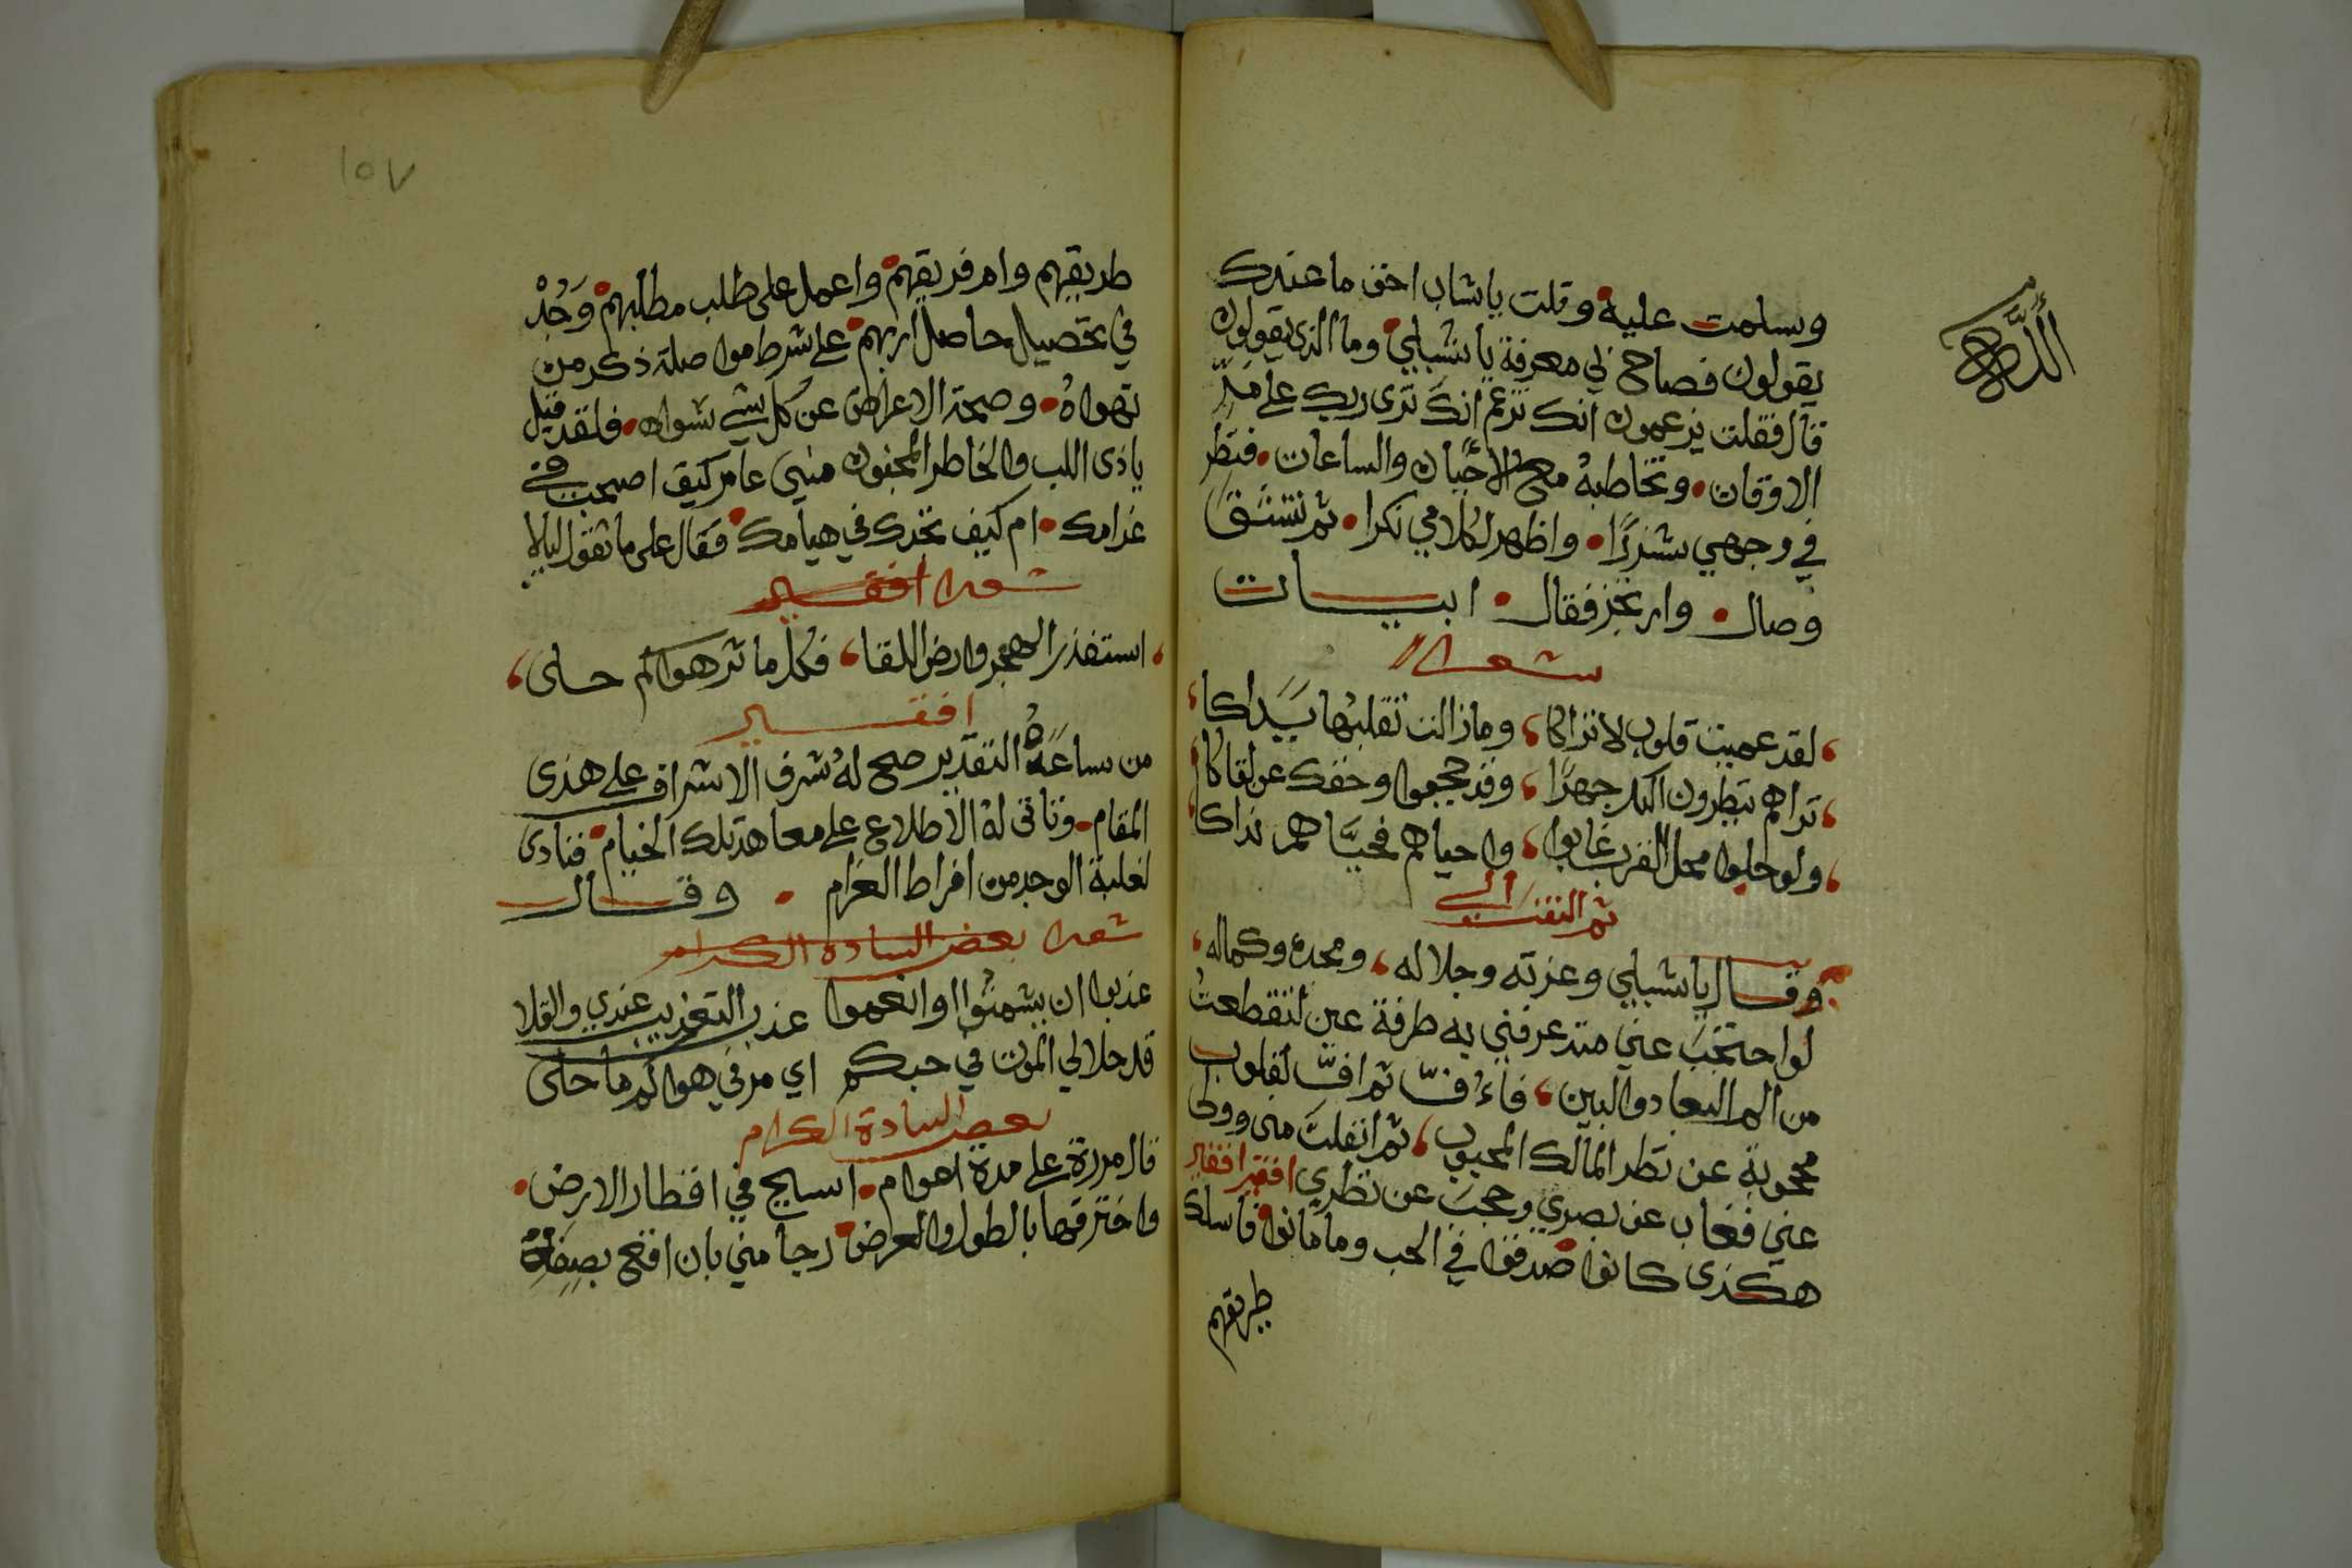 وسلمت عليه وقلت ياشاب اخف ماعندك
يقولون فصاح لي معرفة ياشبلي وما الذى يقولون
قال فقلت يزعمون انك تزعم انك ترى ربك على ممر
الاوقات وتخاطبه مع الاحيان والساعات فنظر
في وجهي شذرًا واظهر لكلامي نكرا ثم تشهق
وصال وارتجز فقال ابيات
شعرا
لقد عميت قلوب لاتراكا ومازالت تقلبها يداكا
تراهم ينظرون اليك جهرًا وقد حجبوا وحقك عن لقاكا
ولو حلوا محل القرب غابوا واحياهم فحياهم نداكا
ثم التفت الي
وقال ياشبلي وعزته وجلاله ومجده وكماله
لواحتجب عني منذ عرفني به طرفة عين لتقطعت
من الم البعاد والبين فاءف ثم اف لقلوب
محجوبة عن نظر المالك المحبوب ثم انفلت مني وولى
عني فغاب عن بصري وحجب عن نظري افقير افقير
هكذى كانوا صدقوا في الحب وما مانوا فاسلك
طريقهم
الله
١٥٧
طريقهم وام فريقهم واعمل على طلب مطلبهم وَجُدْ
في تحصيل حاصل اربهم على شرط مواصلة ذكر من
تهواهُ وصحة الاعراض عن كل شي سواه فلقد قيل
ياذى اللب والخاطر المجنون منيي عامر كيف اصبحت في
غرامك ام كيف نجدك في هيامك فقال على ما تقول ليلا
شعرا افقير
استغفر الهجر وارض اللقا فكل ما ترهواكم حلى
افقير
من ساعَةُ التقدير صح لهُ شرف الاشراف على هذى
المقام وتاتى لهُ الاطلاع على معاهد تلك الخيام فنادى
لغلبة الوجد من افراط الغرام وقال
شعرا بعض السادة الكرام
عذبوا ان يشمتُوا او انعموا عذب التعذيب عندي والقلا
قد حلالي الموت في حبكم اي مر في هواكم ما حلى
بعض السادة الكرام
قال مررة على مدة اعوام اسايح في اقطار الارض
واخترقها بالطول والعرض رجا مني بان افتح بصفاه